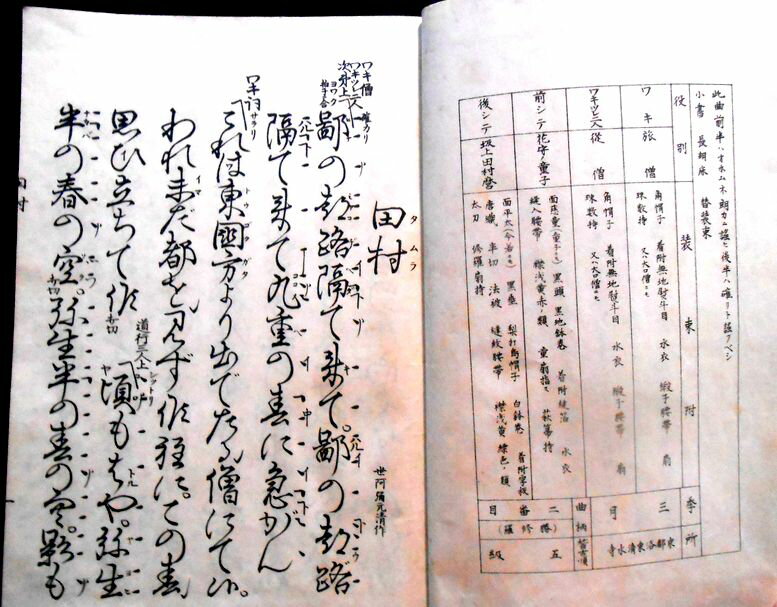 此曲前半ハオホムネ朗カニ謡ヒ後半ハ確リト謡フベシ
小書 長胡床 替装束
役別 装束附 季所
ワキ 旅僧 角帽子 着附無地熨斗目 水衣 緞子腰帯 扇
珠数持 又ハ大口僧ニモ
ワキツレ二人 從僧 角帽子 着附無地熨斗目 水衣 緞子腰帯 扇
珠数持 又ハ大口僧ニモ
前シテ 花守ノ童子 面慈童(童子ニモ) 黒頭 黒地鉢巻 着附縫箔 水衣
縫入腰帯 襟浅黄赤ノ類 童扇指ス 萩箒持
後シテ 坂上田村麿 面平太(今若ニモ) 黒垂 梨打烏帽子 白鉢巻 着附厚板
唐織 半切 法被 縫紋腰帯 襟浅黄緑色ノ類
太刀 修羅扇持
三月
京都洛東清水寺
曲柄 二番目
(勝修羅)
稽古順 五級
田村
タムラ
世阿彌元清作
ワキ僧
ワキツレ二人
次第上
ヨワク
拍子合
確カリ
鄙の都路隔て来て。鄙の都路
隔て来て九重の春に急がん
ワキ詞
サラリ
これは東國方より出でたる僧にて候。
われ未だ都を見ず候程に。この春
思ひ立ちて候
道行三人上
シツトリ
頃もはや。弥生
半の春の空。弥生半の春の空。影も
田村